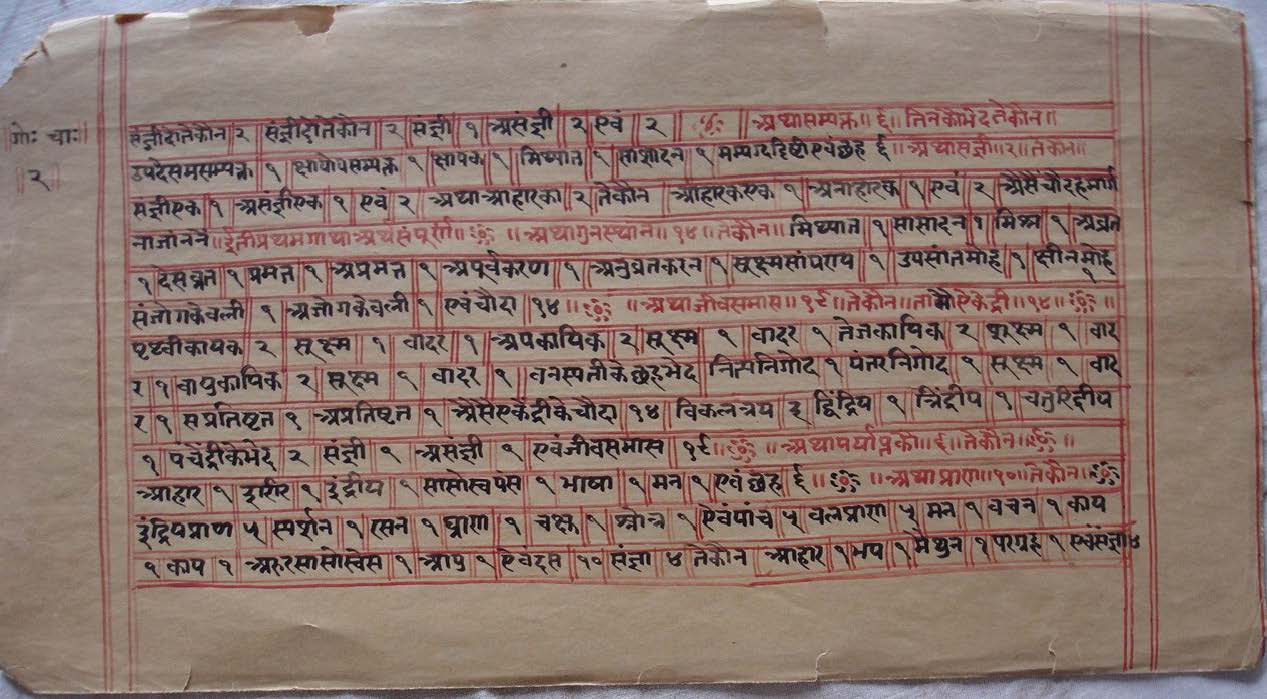 गोः चाः॥
॥२॥
संज्ञीदोतेकौन २ संज्ञीदोतेकौन २ संज्ञी १ असंज्ञी २ एवं २ ॥ अथासम्यक्त॥६॥तिनकेभेदतेकौन॥
उपदेसमसम्यक्त १ क्षायोपसम्यक्त १ क्षायक १ मिथ्यात १ साशादन १ मम्यददिष्टीएवंछह ६॥अथासंज्ञी॥२॥तेकौन॥
संज्ञीएक १ असंज्ञीएक १ एवं २ अथाआहारका २ तेकौन आहारकएक १ अनाहारक १ एवं २ अैसैंचौदहमार्ग
नाजांनने॥ईतीप्रथमगाथाअर्थसंपूर्णं॥ ॥अथागुनस्थान॥१४॥तेकौन॥मिथ्यात १ सासादन १ मिश्र १ अव्रत
१ देसव्रत १ प्रमत्त १ अप्रमत्त १ अपूर्वकरण १ अनुव्रतकरन १ सूक्ष्मसांपराय १ उपसांतमोह १ क्षीनमोह १
संजोगकेवली १ अजोगकेवली १ एवंचौदा १४॥ ॥अथाजीवसमास॥१९॥तेकौन॥तामेएकेंद्री॥१४॥ ॥
पृथ्वीकायक २ सूक्ष्म १ वादर १ अपकायिक २ सूक्ष्म १ वादर १ तेजकायिक २ सूक्ष्म १ वाद
र १ वायुकायिक २ सूक्ष्म १ वादर १ वनस्पतीकेछहभेद नित्यनिगोद १ पंतरनिगोद १ सूक्ष्म १ वाद
र १ सप्रतिष्टत १ अप्रतिष्टत १ अैसैएकेंद्रीकेचौदा १४ विकलत्रय ३ द्विंद्रिय १ त्रिंद्रीय १ चतुरिंद्रीय
१ पंचेंद्रीकेभेद २ संज्ञी १ असंज्ञी १ एवंजीवसमास १९॥ ॥अथापर्याप्तकौ॥६॥तेकौन॥ ॥
आहार १ शरीर १ इंद्रीय १ सासोस्वपेस १ भाषा १ मन १ एवंछह ६॥ ॥अथाप्राण॥१०॥तेकौन॥
इंद्रियप्राण ५ स्पर्शन १ रसन १ घ्राण १ चक्ष १ श्रोत्र १ एवंपांच ५ वलप्राण ५ मन १ वचन १ काय
१ काय १ अरुरसासोस्वेस १ आयु १ ऐवंदस १० संज्ञा ४ तेकौन आहार १ भय १ मैथुन १ परग्रह १ एवंसंज्ञा४